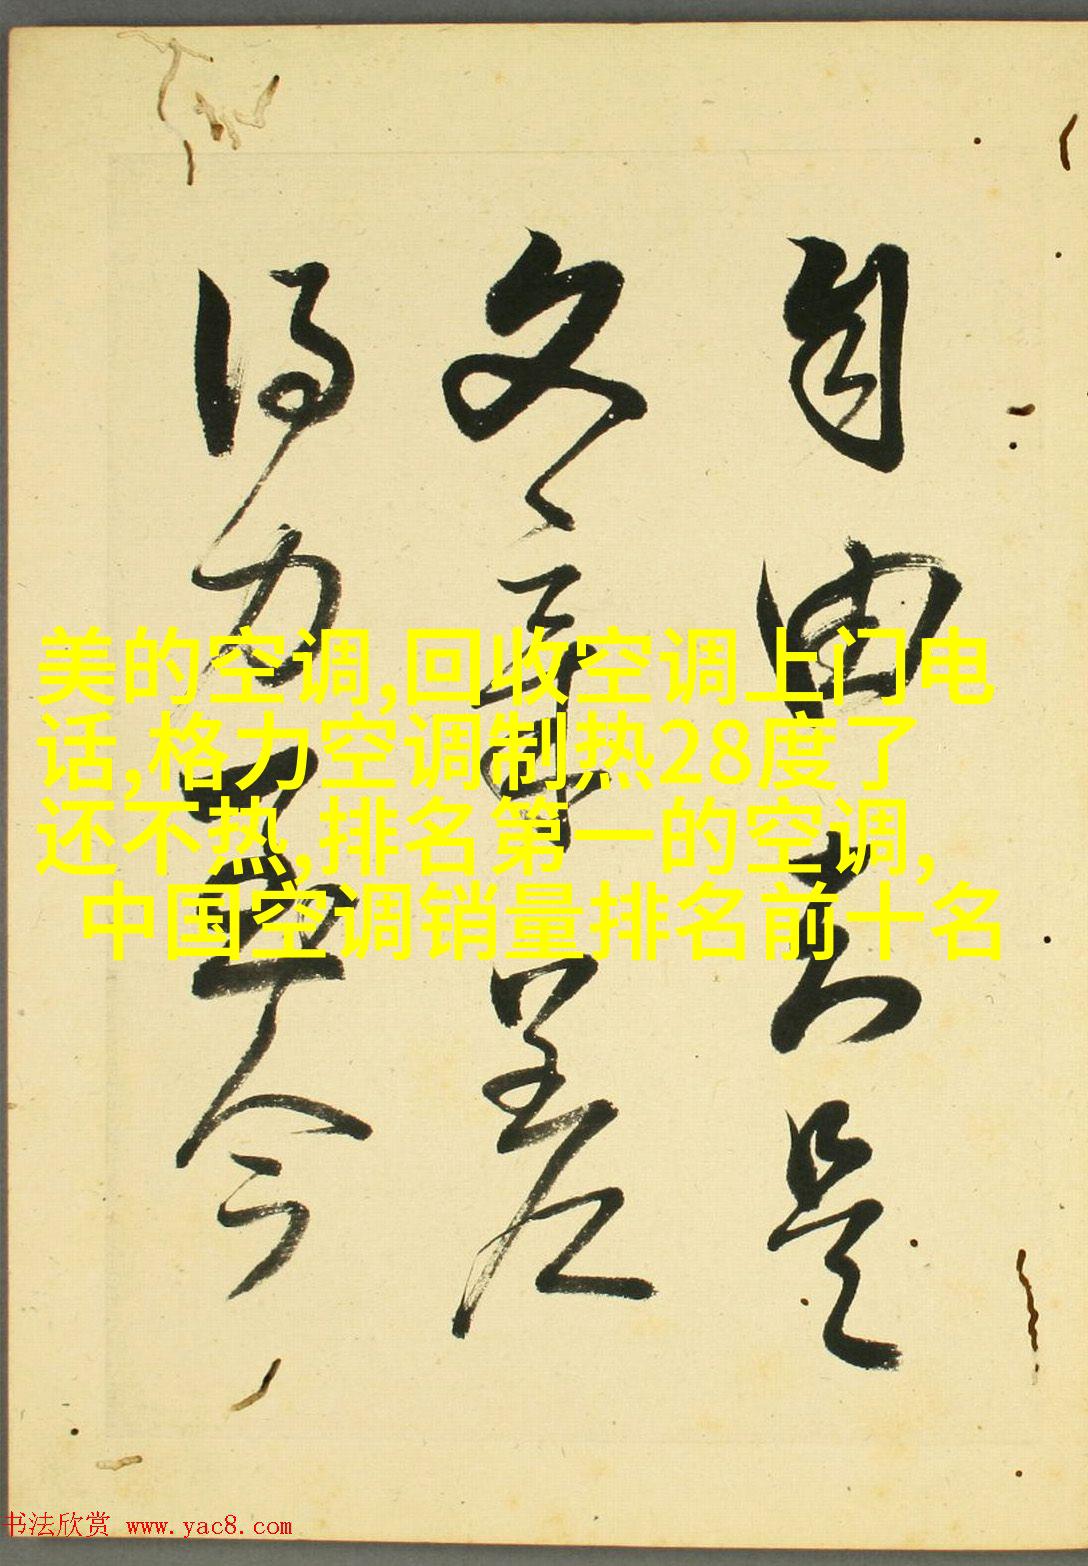 美的空调,回收空调上门电
话,格力空调制热28度了
还不热,排名第一的空调,
中国空调销量排名前十名
自由是
文章
得力今
书法欣赏 www.yac8.com